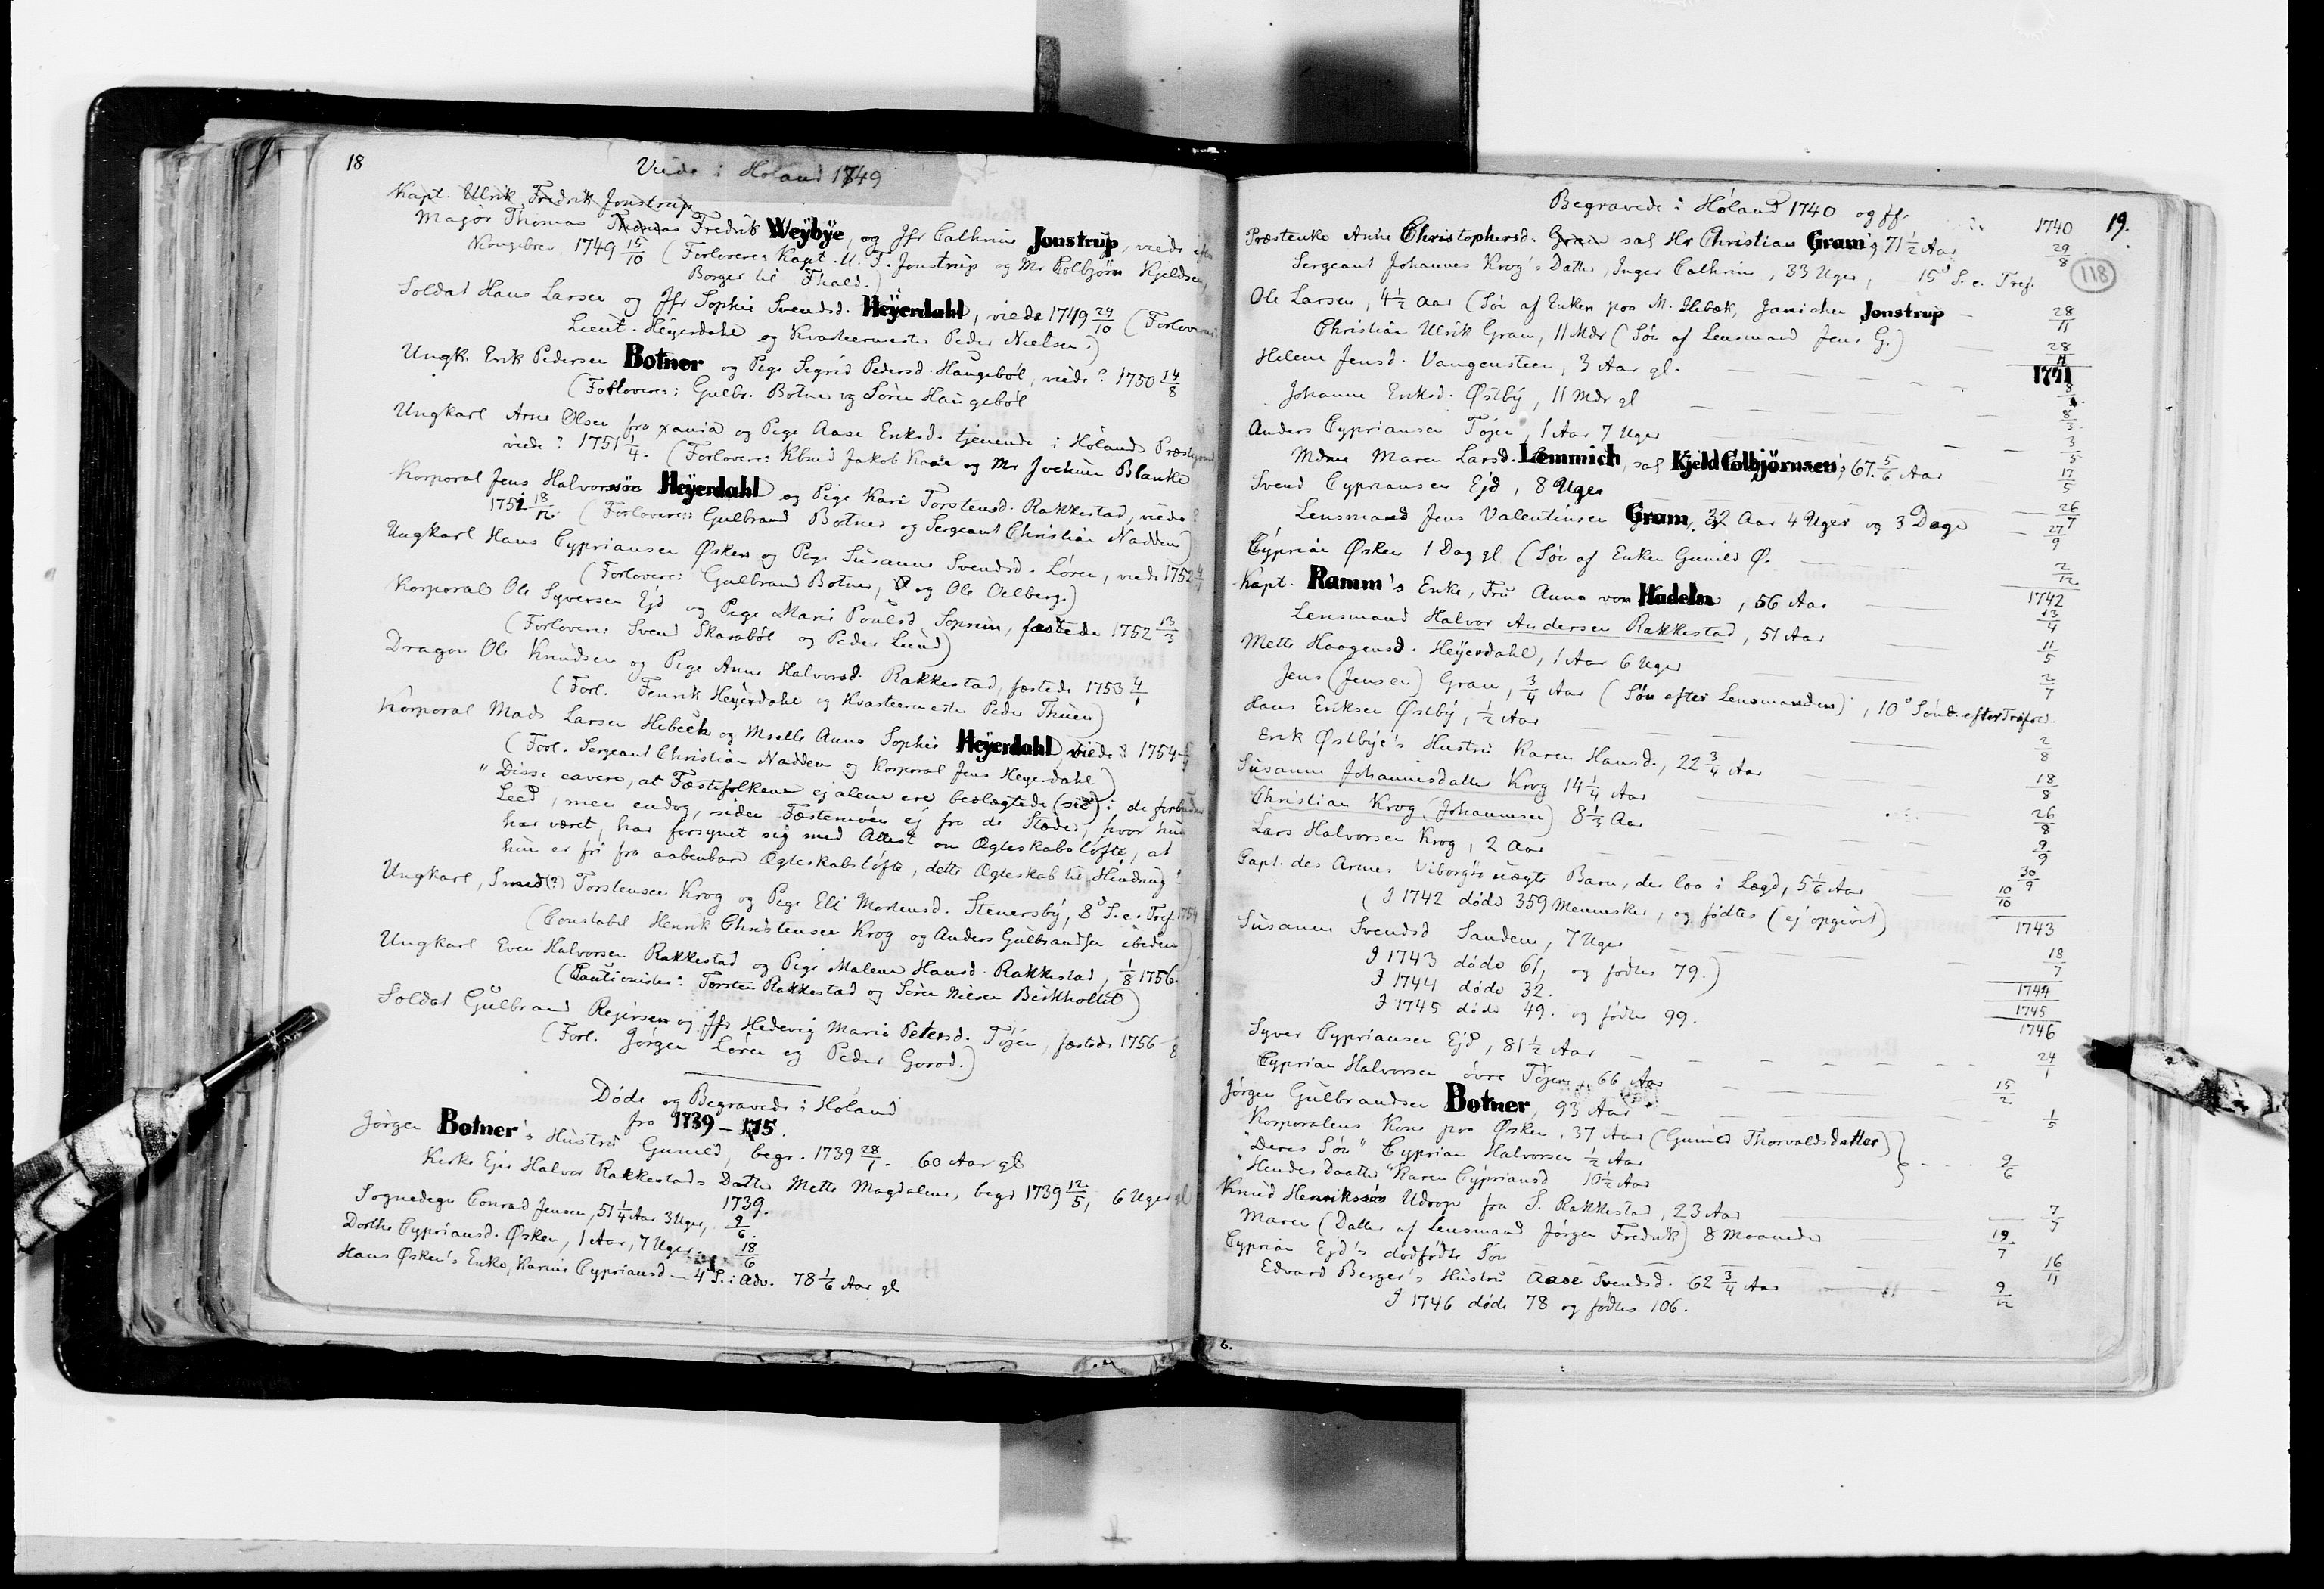 18
Viede i Höland 1749
Kapt. Ulrik Fredrik Jonstrup
Major Thomas Thomas Fredrik Weÿbÿe, og Jfr Cathrine Jonstrup, viede efter
Kongebrev 1749 15/10 (Forlovere: Kapt. U. F. Jonstrup og Mr Colbjørn Kjeldsen,
Borger til Fhald.)
Soldat Hans Larsen og Jfr Sophie Svendsd. Heÿerdahl, viede 1749 29/10 (Forlovere:
Lieut. Heÿerdahl og Kvarteermester Peder Nielsen.)
Ungk. Erik Pedersen Botner og Pige Sigrid Pedersd. Haugeböl, viede? 1750 14/8
(Forlovere: Gulbr. Botner og Sören Haugeböl
Ungkarl Arne Olsen fra xania og Pige Aase Eriksd. tjenende i Hölands Præstegaard
viede? 1751 1/4. (Forlovere: Kbmd Jakob Kraie og Mr Jochum Blanke
Korporal Jens Halvorssön Heÿerdahl og Pige Kari Torstensd. Rakkestad, viede?
1751 18/12 (Forlovere: Gulbrand Botner og Sergeant Christian Nadden)
Ungkarl Hans Cypriansen Øsken og Pige Susanne Svendsd. Lören, viede 1752 4/1
(Forlovere: Gulbrand Botner, og Ole Aelberg.)
Korporal Ole Syversen Ejd og Pige Mari Poulsd Soprim, fæstede 1752 13/3
(Forlovere: Svend Skaraböl og Peder Lund)
Dragon Ole Knudsen og Pige Anne Halvorsd. Rakkestad, fæstede 1753 4/1
(Forl. Fenrik Heÿerdahl og Kvarteermester Peder Thuen)
Korporal Mads Larsen Hebeck og Mselle Anna Sophie Heÿerdahl, viede? 1754
(Forl. Sergeant Christian Nadden og Korporal Jens Heyerdahl)
"Disse cavere, at Fæstefolkene ej alene ere beslagtede (sic) i de forbudne
Leed, men endog, siden Fæstemöen ej fra de Stæder, hvor hun
har været, har forsynet sig med Attest om Ægteskabslöfte, at
hun er fri fra aabenbare Ægteskabslöfte, dette Ægteskab til Hindring"
Ungkarl, Smed(?) Torstensen Krog og Pige Eli Mortensd. Stenersbÿ, 8° S. e. Tref. 1754
(Constabel Henrik Christensen Krog og Anders Gulbrandsen ibidem)
Ungkarl Even Halvorsen Rakkestad og Pige Malene Hansd. Rakkestad, 1/8 1756.
(Cautionister: Torsten Rakkestad og Sören Nilsen Berkholtet)
Soldat Gulbrand Rejersen og Jfr Hedevig Maria Petersd. Töjen, fæstede 1756
(Forl. Jörgen Lören og Peder Gorod.)
Döde og Begravede i Höland
fra 1739 – 175 .
Jörgen Botner's Hustru Gunild, begr. 1739 28/1. 60 Aar gl
Kirke Ejer Halvor Rakkestads Datter Mette Magdalene, begr 1739 12/5, 6 Uger gl
1739.
Sognedegn Conrad Jensen, 51 1/4 Aar 3 Uger, 9/6.
Dorthe Cypriansd. Øsken, 1 Aar, 7 Uger 18/6
Hans Øsken's Enke, Karine Cypriansd – 4 S. i Adv. 78 1/6 Aar gl
Begravede i Höland 1740 og ff. 1740 19.
Præstenke Anne Christophersd. Gram sal Hr Christian Gram's 71 1/2 Aar 29/8
118
Sergeant Johannes Krog's Datter, Inger Cathrine, 33 Uger, 15° S. e. Tref.
Ole Larsen, 4 1/2 Aar (Sön af Enken paa M. Hebæk, Janichen Jonstrup — 28/11
Christian Ulrik Gram, 11 Mdr (Sön af Lensmand Jens G.) — 28/11
1741
Helene Jensd. Vangensteen, 3 Aar gl.
Johanne Eriksd. Østbÿ, 11 Mdr gl 8/3
Anders Cypriansen Töjen, 1 Aar 7 Uger 3/5
Mdme Maren Larsd. Lemmich, sal Kjeld Colbjörnsen's 67 5/6 Aar 17/5
Svend Cypriansen Ejd, 8 Uger 26/7
Lensmand Jens Valentinsen Gram, 32 Aar 4 Uger og 3 Dage — 27/9
Cÿprian Øsken 1 Dag gl (Sön af Enken Gunild Ø. 2/12
1742
Kapt. Ramm's Enke, Fru Anna von Hadeln, 56 Aar 13/4
Lensmand Halvor Andersen Rakkestad, 51 Aar 11/5
Mette Haagensd. Heÿerdahl, 1 Aar 6 Uger 2/7
Jens (Jensen) Gram, 3/4 Aar (Sön efter Lensmanden), 10° Sönd. efter Trefold.
Hans Eriksen Østbÿ, 1/2 Aar 2/8
Erik Østbÿe's Hustru Karen Hansd., 22 3/4 Aar 18/8
Susanne Johannisdatter Krog 14 1/4 Aar 26/8
Christian Krog (Johannesen) 8 1/3 Aar 9/9
Lars Halvorsen Krog, 2 Aar 30/9
Capt. des Armes Viborg's uægte Barn, der laa i Lægd, 5 1/6 Aar 10/10
(I 1742 döde 359 Mennesker, og födtes (ej opgivet)
1743
Susanne Svendsd Sandem, 7 Uger 18/7
I 1743 döde 61, og födtes 79.)
1744
I 1744 döde 32.
1745
I 1745 döde 49. og födtes 99.
1746
Syver Cypriansen Ejd, 81 1/2 Aar 24/1
Cyprian Halvorsen övre Töjen, 66 Aar 15/2
Jörgen Gulbrandsen Botner, 93 Aar 1/5
Korporalens Kone paa Øsken, 37 Aar (Gunild Thorvaldsdatter)
"Deres Sön" Cyprian Halvorsen 1/2 Aar 9/6
"Hendes Daatter" Karen Cÿpriansd 10 1/2 Aar
Knud Henrikssön Udrop fra S. Rakkestad, 23 Aar 7/7
Maren (Datter af Lensmand Jörgen Fredrik) 8 Maaneder 19/7
Cyprian Ejd's dödfödte Sön 16/11
Edvard Berger's Hustru Aase Svendsd. 62 3/4 Aar 9/12
I 1746 döde 78 og födtes 106.
6.